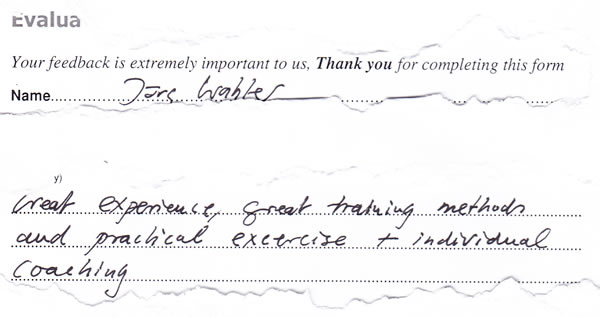 Evalua
Your feedback is extremely important to us, Thank you for completing this form
Name
y)
Great experience, great training methods
and practical excercise + individual
Coaching